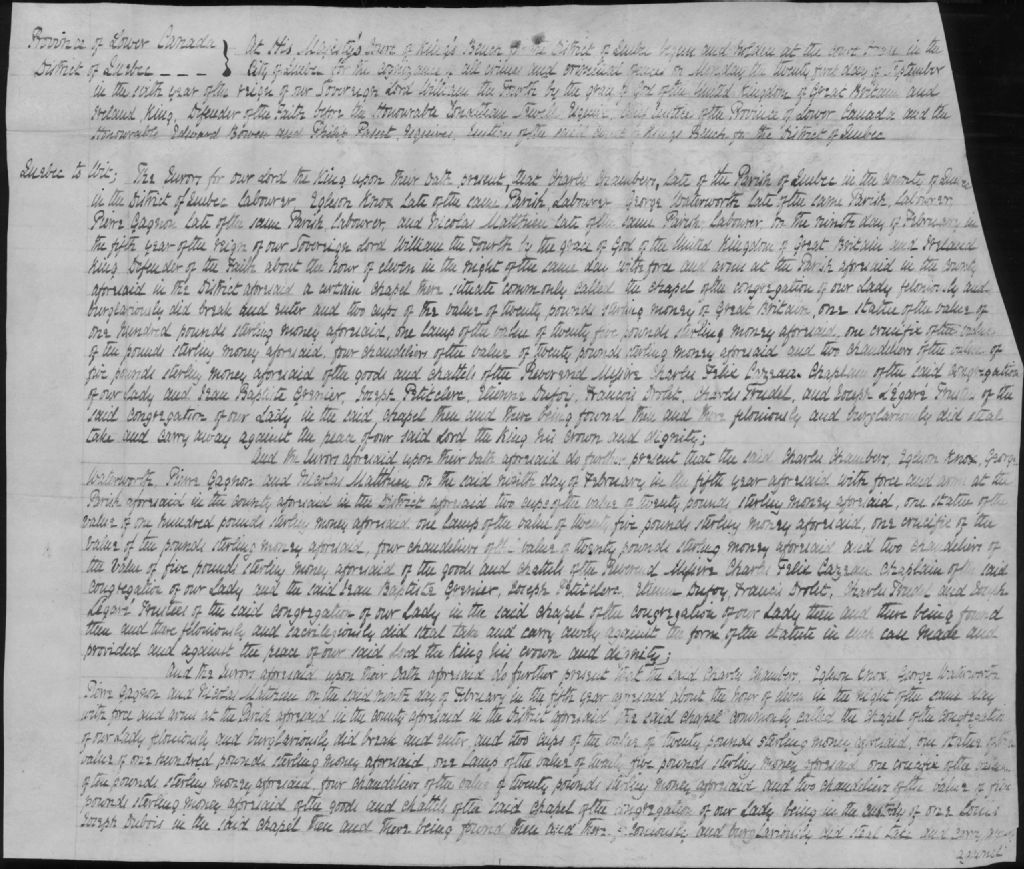 Province of Lower Canada } At His Majesty's Court of King's Bench for the District of Quebec begun and holden at the Court House in the
District of Quebec - - - } City of Quebec for the cognizance of all crimes and criminal offences on Monday the twenty first day of September
in the sixth year of the reign of our Sovereign Lord William the Fourth by the grace of God of the United Kingdom of Great Britain and
Ireland King, Defender of the Faith before the Honourable Jonathan Sewell Esquire, Chief Justice of the Province of Lower Canada and the
Honourable Edward Bowen and Philip Panet, Esquires, Justices of the said Court of King's Bench for the District of Quebec
Quebec to Wit; The Jurors for our Lord the King upon their oath present, that Charles Chambers, late of the Parish of Quebec in the County of Quebec
in the District of Quebec Labourer, Egleson Knox late of the same Parish, Labourer George Waterworth late of the same Parish, Labourer,
Pierre Gagnon late of the same Parish, Labourer, and Nicolas Matthieu late of the same Parish, Labourer, on the ninth day of February in
the fifth year of the reign of our Sovereign Lord William the Fourth by the grace of God of the United Kingdom of Great Britain and Ireland
King, Defender of the Faith about the hour of eleven in the night of the same day with force and arms at the Parish aforesaid in the County
aforesaid in the District aforesaid a certain chapel there situate commonly called the chapel of the congregation of our Lady feloniously and
burglariously did break and enter and two cups of the value of twenty pounds sterling money of Great Britain, one statue of the value of
one hundred pounds sterling money aforesaid, one lamp of the value of twenty five pounds sterling money aforesaid, one crucifix of the value
of ten pounds sterling money aforesaid, four chandeliers of the value of twenty pounds sterling money aforesaid and two chandeliers of the value of
five pounds sterling money aforesaid of the goods and chattels of the Reverend Messire Charles Felix Cazeau Chaplain of the said congregation
of our Lady and Jean Baptiste Grenier, Joseph Petitclerc, Etienne Dufoy, Francois Drolet, Charles Trudel, and Joseph Légaré Trustees of the
said congregation of our Lady in the said chapel then and there being found then and there feloniously and burglariously did steal
take and carry away against the peace of our said Lord the King his crown and dignity;
And the Jurors aforesaid upon their oath aforesaid do further present that the said Charles Chambers, Egleson Knox, George
Waterworth, Pierre Gagnon and Nicolas Matthieu on the said ninth day of February in the fifth year aforesaid with force and arms at the
Parish aforesaid in the county aforesaid in the District aforesaid two cups of the value of twenty pounds sterling money aforesaid, one statue of the
value of one hundred pounds sterling money aforesaid one lamp of the value of twenty five pounds sterling money aforesaid, one crucifix of the
value of ten pounds sterling money aforesaid, four chandeliers of the value of twenty pounds sterling money aforesaid and two chandeliers of
the value of five pounds sterling money aforesaid of the goods and chattels of the Reverend Messire Charles Felix Cazeau Chaplain of the said
congregation of our Lady and the said Jean Baptiste Grenier, Joseph Petitclerc, Etienne Dufoy, Francis Drolet, Charles Trudel and Joseph
Légaré Trustees of the said congregation of our Lady in the said chapel of the congregation of our Lady then and there being found
then and there feloniously and sacrilegiously did steal take and carry away against the form of the statute in such case made and
provided and against the peace of our said Lord the King his crown and dignity;
And the Jurors aforesaid upon their oath aforesaid do further present that the said Charles Chambers, Egleson Knox, George Waterworth
Pierre Gagnon and Nicolas Matthieu on the said ninth day of February in the fifth year aforesaid about the hour of eleven in the night of the same day
with force and arms at the Parish aforesaid in the county aforesaid in the District aforesaid the said chapel commonly called the chapel of the congregation
of our Lady feloniously and burglariously did break and enter, and two cups of the value of twenty pounds sterling money aforesaid, one statue of the
value of one hundred pounds sterling money aforesaid, one lamp of the value of twenty five pounds sterling money aforesaid, one crucifix of the value
of ten pounds sterling money aforesaid, four chandeliers of the value of twenty pounds sterling money aforesaid and two chandeliers of the value of five
pounds sterling money aforesaid of the goods and chattels of the said chapel of the congregation of our Lady being in the custody of one Louis
Joseph Dubois in the said chapel then and there being found then and there feloniously and burglariously did steal take and carry away
against